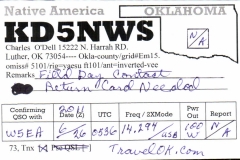 Native America
OKLAHOMA
KD5NWS
N/A
Charles O'Dell 15222 N. Harrah RD.
Luther, OK 73054---- Okla-county/grid=Em15.
omiss# 5101/rig=yaesu ft101/ant=inverted-vee
Remarks Field Day Contact
Return Card Needed
Confirming QSO with 2011 GMT Freq / 2XMode Pwr Out Report
W5EA 6/26 0536 14.294 USB 100 W N/A
73, Tnx Pse QSL! TravelOK.com